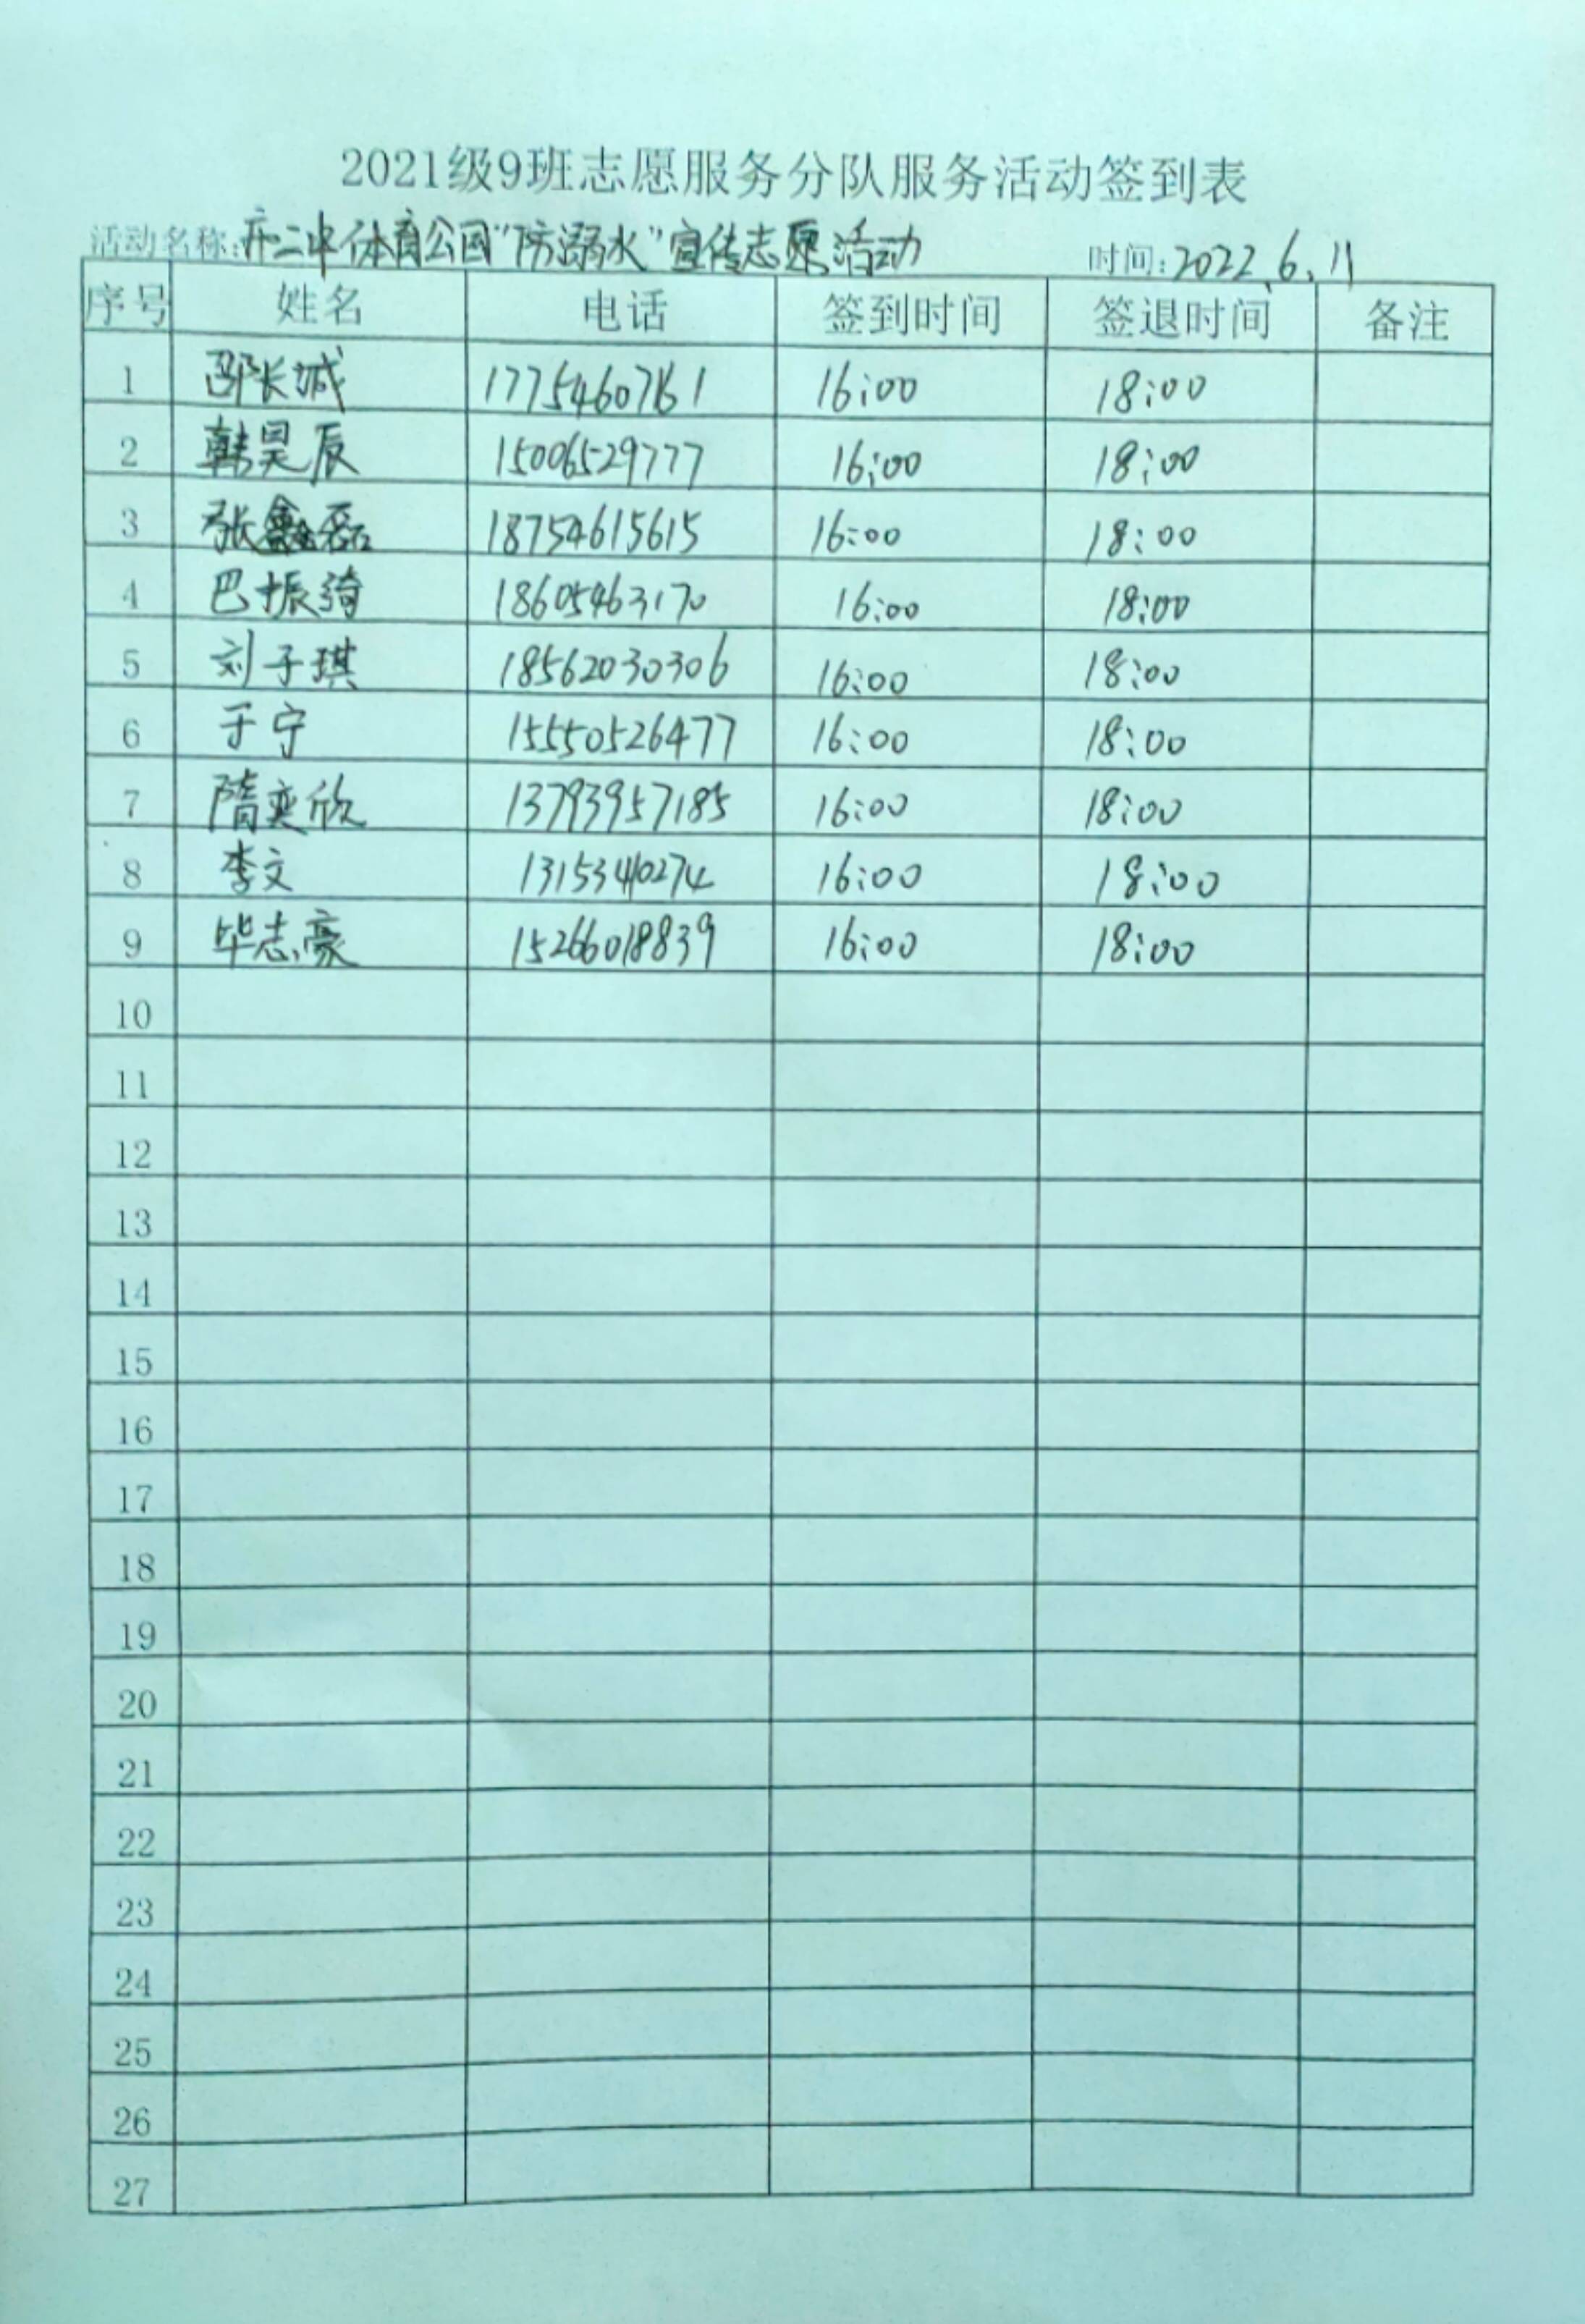 2021级9班志愿服务分队服务活动签到表
活动名称:开二中体育公园“防溺水”宣传志愿活动 时间:2022.6.11
序号 姓名 电话 签到时间 签退时间 备注
1 邵长城 16:00 18:00
2 韩昊辰 15006529777 16:00 18:00
3 张鑫磊 18754615615 16:00 18:00
4 巴振绮 18605463170 16:00 18:00
5 刘子琪 18562030306 16:00 18:00
6 于宁 15550526477 16:00 18:00
7 隋奕欣 13793957185 16:00 18:00
8 李文 16:00 18:00
9 毕志豪 15266018839 16:00 18:00
10
11
12
13
14
15
16
17
18
19
20
21
22
23
24
25
26
27